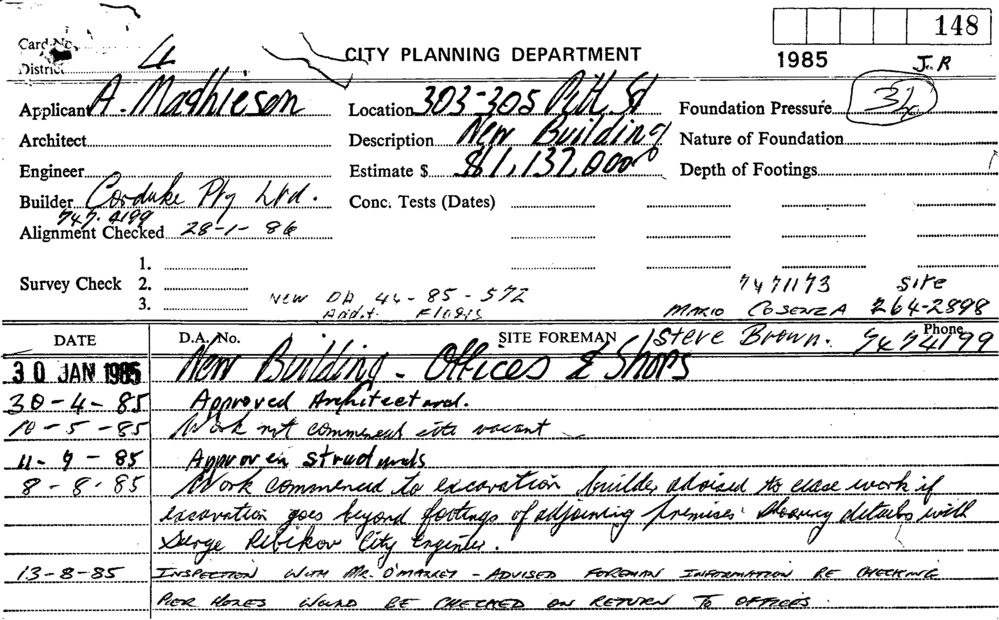 148
Card No.
District 4
CITY PLANNING DEPARTMENT
1985 J.R
Applicant A. Mathieson Location 303-305 Pitt St Foundation Pressure
Architect Description New Building Nature of Foundation
Engineer Estimate $ $1,137,000 Depth of Footings
Builder Corduke Pty Ltd. Conc. Tests (Dates)
747-4199
Alignment Checked 28-1-86
1.
Survey Check 2. 7471173 site
3. NEW DA 44-85-572 MARIO COSENZA 264-2898
Addit. Floors
DATE D.A. No. SITE FOREMAN Steve Brown. Phone 7474199
30 JAN 1985 New Building - Offices & Shops
30-4-85 Approved Architectural.
10-5-85 Work not commenced site vacant
11-7-85 Approven structurals
8-8-85 Work commenced to excavation builder advised to cease work if
excavation goes beyond footings of adjoining premises. Shoring details with
Serge Ribikov City Engineer.
13-8-85 INSPECTION WITH MR. O'MARNEY - ADVISED FOREMAN INFORMATION RE CHECKING
PIER HOLES WOULD BE CHECKED ON RETURN TO OFFICES.